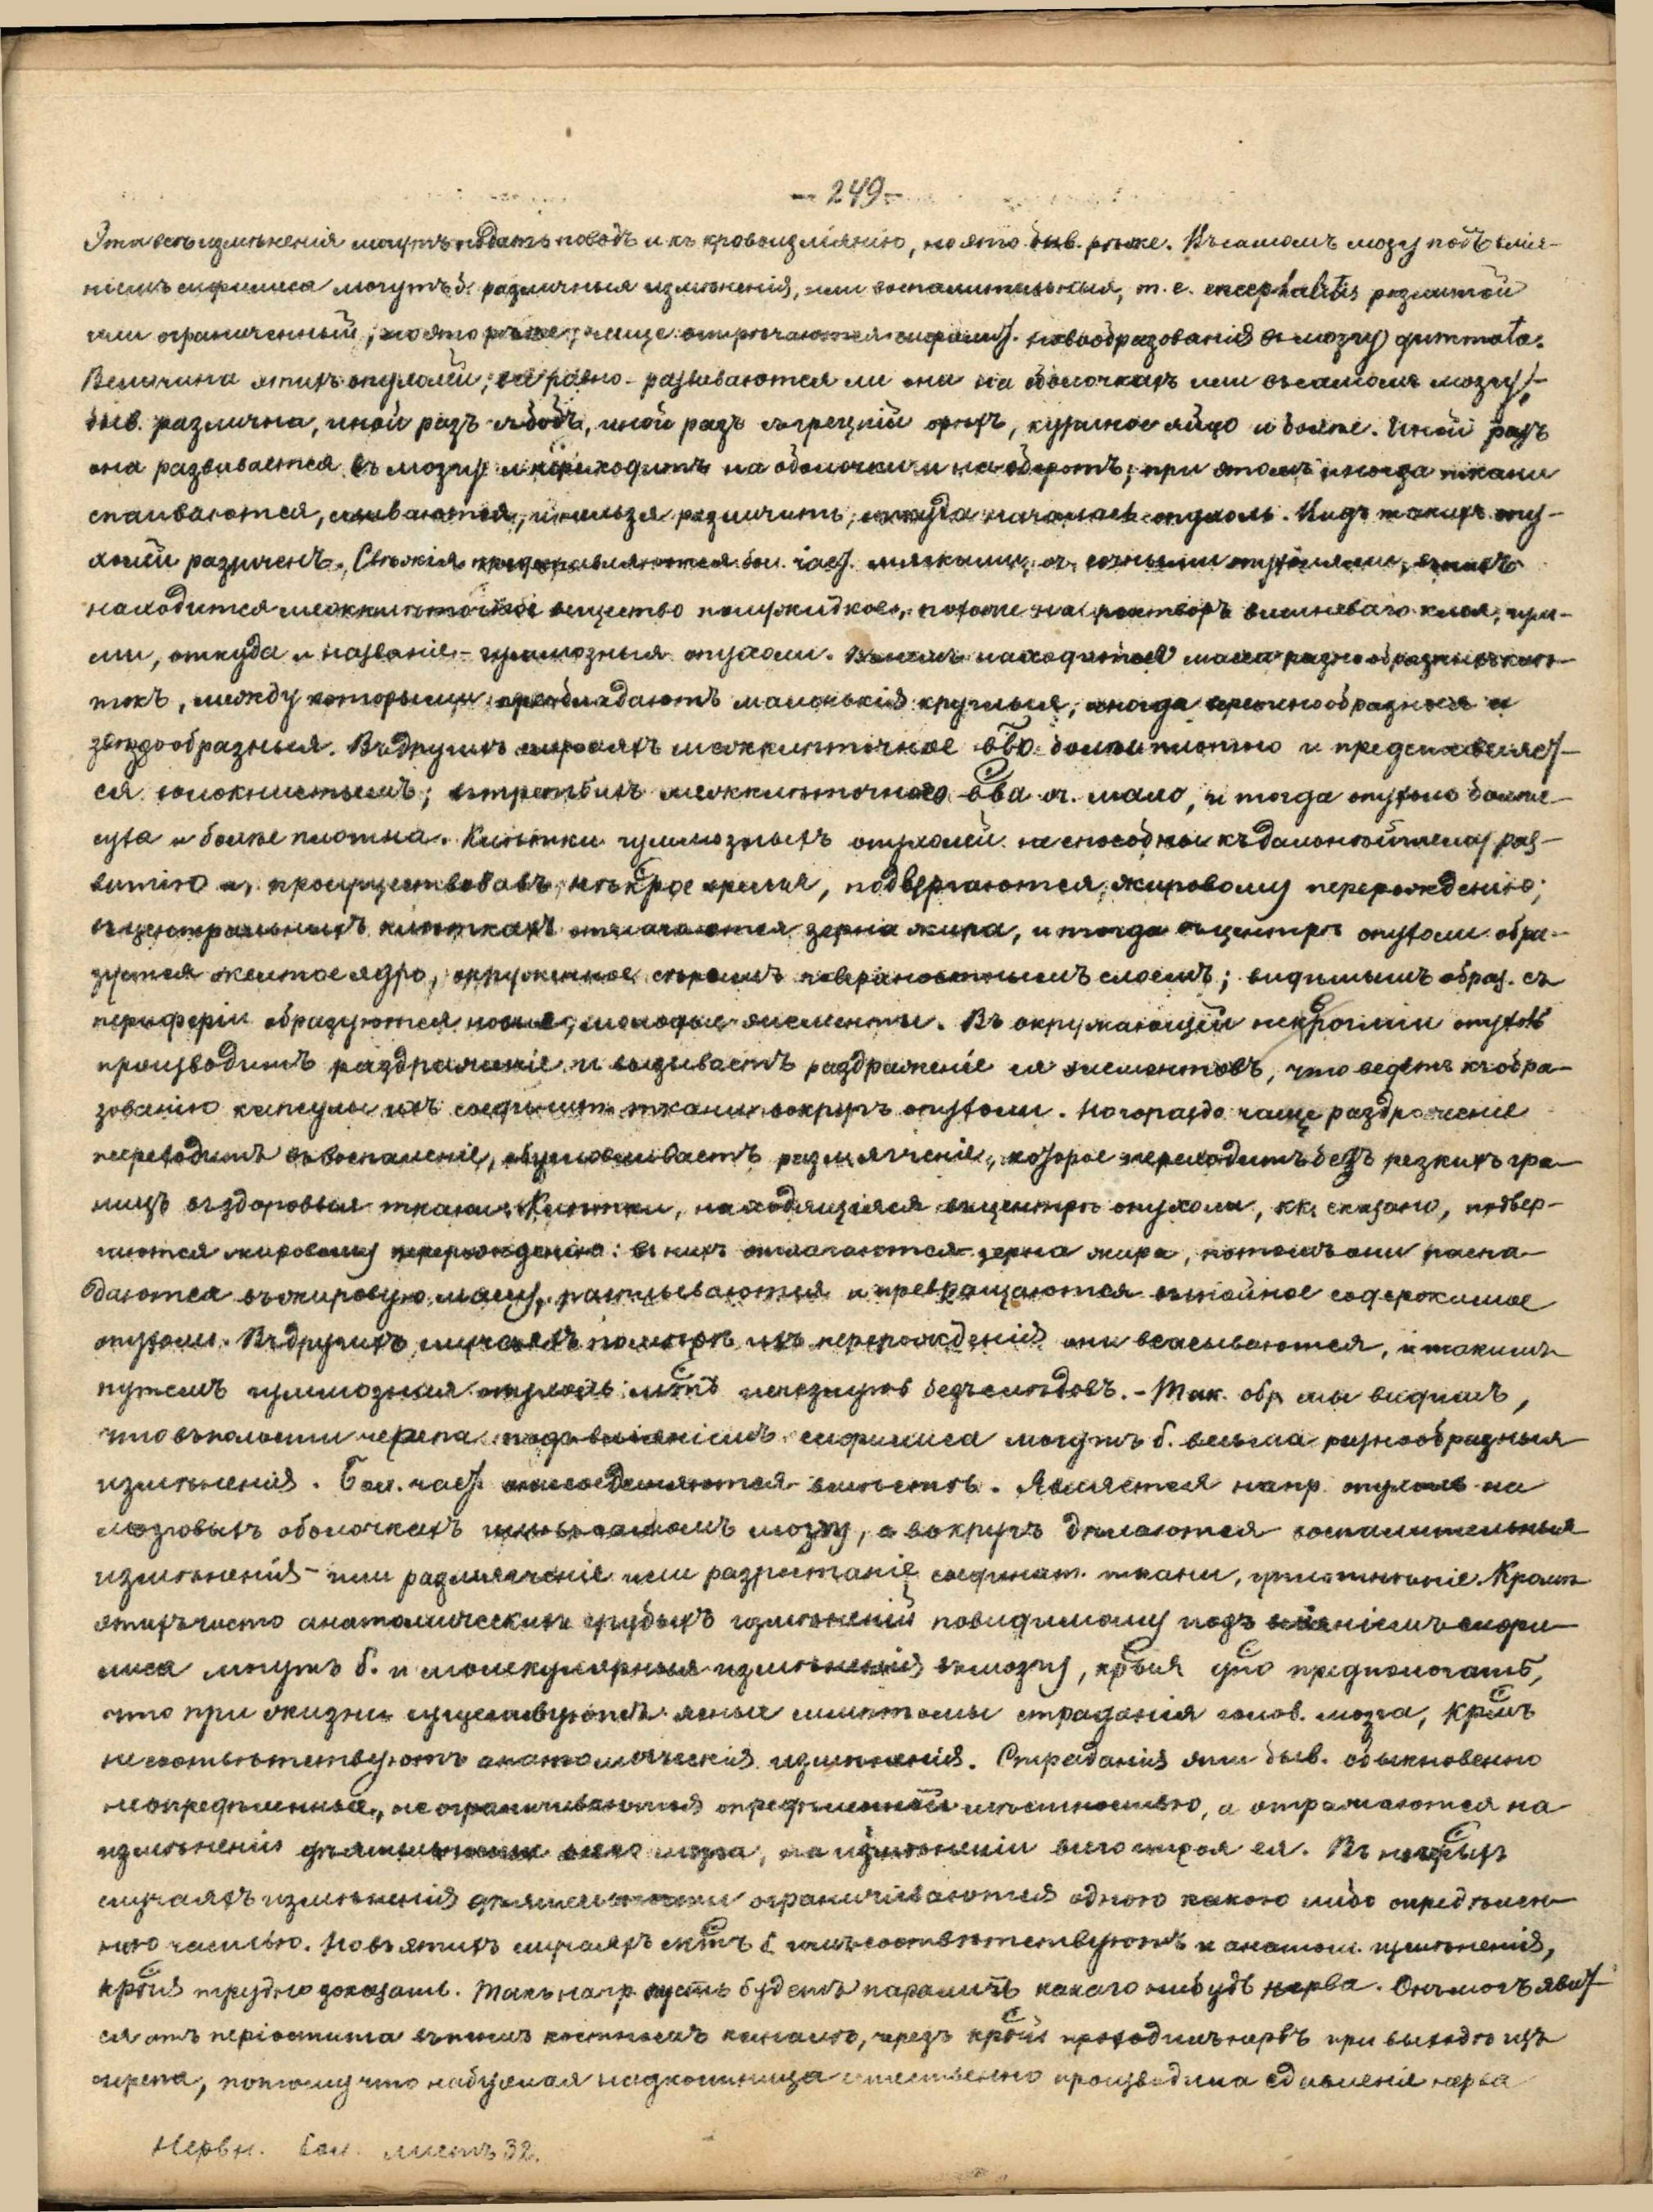 — 249 —
Эти всѣ измѣненія могутъ подать поводъ и къ кровоизліянію, но это быв. рѣже. Въ самомъ мозгу подъ влія-
ніемъ сифилиса могутъ б. различныя измѣненія, или воспалительныя, т. е. encephalitis разлитой
или ограниченный, но это рѣже; чаще встрѣчаются сифилит. новообразованія въ мозгу gummata.
Величина этихъ опухолей, все равно - развиваются ли они на оболочкахъ или въ самомъ мозгу, -
быв. различна, иной разъ съ бобъ, иной разъ съ грецкій орѣхъ, куриное яйцо и болѣе. Иной разъ
она развивается въ мозгу и переходитъ на оболочки и на оборотъ; при этомъ иногда ткани
спаиваются, сливаются, и нельзя различить, откуда началась опухоль. Видъ такихъ опу-
холей различенъ. Свѣжія представляются бол. част. мягкими, оч. сочными опухолями, въ нихъ
находится мелкоклѣточное вещество полужидкое, похоже на растворъ вишневаго клея, гум-
ми, откуда и названіе - гуммозныя опухоли. Въ нихъ находится масса разнообразныхъ клѣ-
токъ, между которыми преобладаютъ маленькія круглыя, иногда веретенообразныя и
звѣздообразныя. Въ другихъ случаяхъ мелкоклѣточное в-во болѣе плотно и представляет-
ся волокнистымъ; въ третьихъ мелкоклѣточнаго в-ва оч. мало, и тогда опухоль болѣе
суха и болѣе плотна. Клѣтки гуммозныхъ опухолей не способны къ дальнѣйшему раз-
витію и, просуществовавъ нѣкрое время, подвергаются жировому перерожденію;
въ центральныхъ клѣткахъ отлагаются зерна жира, и тогда въ центрѣ опухоли обра-
зуется желтое ядро, окруженное сѣрымъ поверхностнымъ слоемъ; видимымъ образ. съ
периферіи образуются новые, молодые элементы. Въ окружающей нейрогліи опухоль
производитъ раздраженіе и вызываетъ раздраженіе ея элементовъ, что ведетъ къ обра-
зованію капсулы изъ соединит. ткани вокругъ опухоли. Но гораздо чаще раздраженіе
переходитъ въ воспаленіе, обусловливаетъ размягченіе, которое переходитъ безъ рѣзкихъ гра-
ницъ въ здоровыя ткани. Клѣтки, находящіяся въ центрѣ опухоли, кк. сказано, подвер-
гаются жировому перерожденію: въ нихъ отлагаются зерна жира, потомъ они распа-
даются въ жировую массу, расплываются и превращаются въ гнойное содержимое
опухоли. Въ другихъ случаяхъ по мѣрѣ ихъ перерожденія они всасываются, и такимъ
путемъ гуммозная опухоль мтъ исчезнуть безъ слѣдовъ. - Так. обр мы видимъ,
что въ полости черепа подъ вліяніемъ сифилиса могутъ б. весьма разнообразныя
измѣненія. Бол. част они соединяются вмѣстѣ. Является напр. опухоль на
мозговыхъ оболочкахъ или въ самомъ мозгу, а вокругъ дѣлаются воспалительныя
измѣненія - или размягченіе или разрастаніе соединит. ткани, уплотнѣніе. Кромѣ
этихъ чисто анатомическихъ грубыхъ измѣненій повидимому подъ вліяніемъ сифи-
лиса могутъ б. и молекулярныя измѣненія въ мозгу, крыя удо предполагать,
что при жизни существуютъ ясные симптомы страданія голов. мозга, крымъ
не соотвѣтствуютъ анатомическія измѣненія. Страданія эти быв. обыкновенно
неопредѣленныя, не ограничиваются опредѣленной мѣстностью, а отражаются на
измѣненіи дѣятельности всего мозга, на измѣненіи всего строя ея. Въ нѣкрыхъ
случаяхъ измѣненія дѣятельности ограничиваются одною какою либо опредѣлен-
ною частью. Но въ этихъ случаяхъ мтъ б имъ соотвѣтствуютъ и анатом. измѣненія,
крыя трудно доказать. Такъ напр. пусть будетъ параличъ какаго нибудь нерва. Онъ могъ явит-
ся отъ періостита въ томъ костномъ каналѣ, черезъ крый проходитъ нервъ при выходѣ изъ
черепа, потому что набухшая надкостница естественно производила сдавленіе нерва
Нервн. бол. листъ 32.